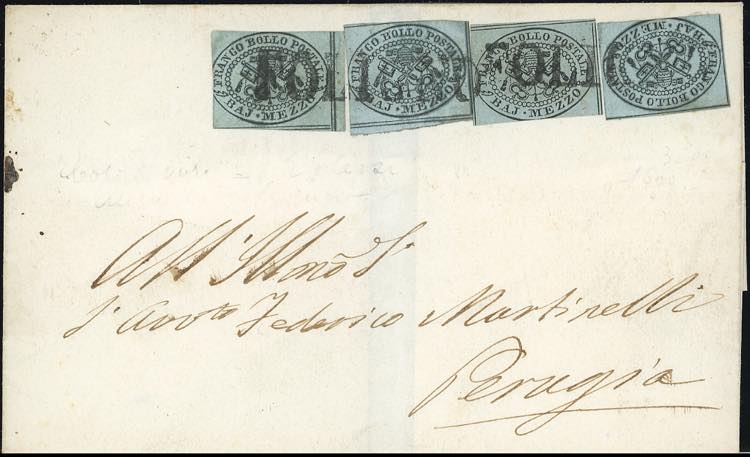 FRANCO BOLLO POSTALE
BAJ · MEZZO
FRANCO BOLLO POSTALE
BAJ · MEZZO
FRANCO BOLLO POSTALE
BAJ · MEZZO
FRANCO BOLLO POSTALE
BAJ · MEZZO
All' Illmo Sr
Sr Avvto Federico Martinelli
Perugia